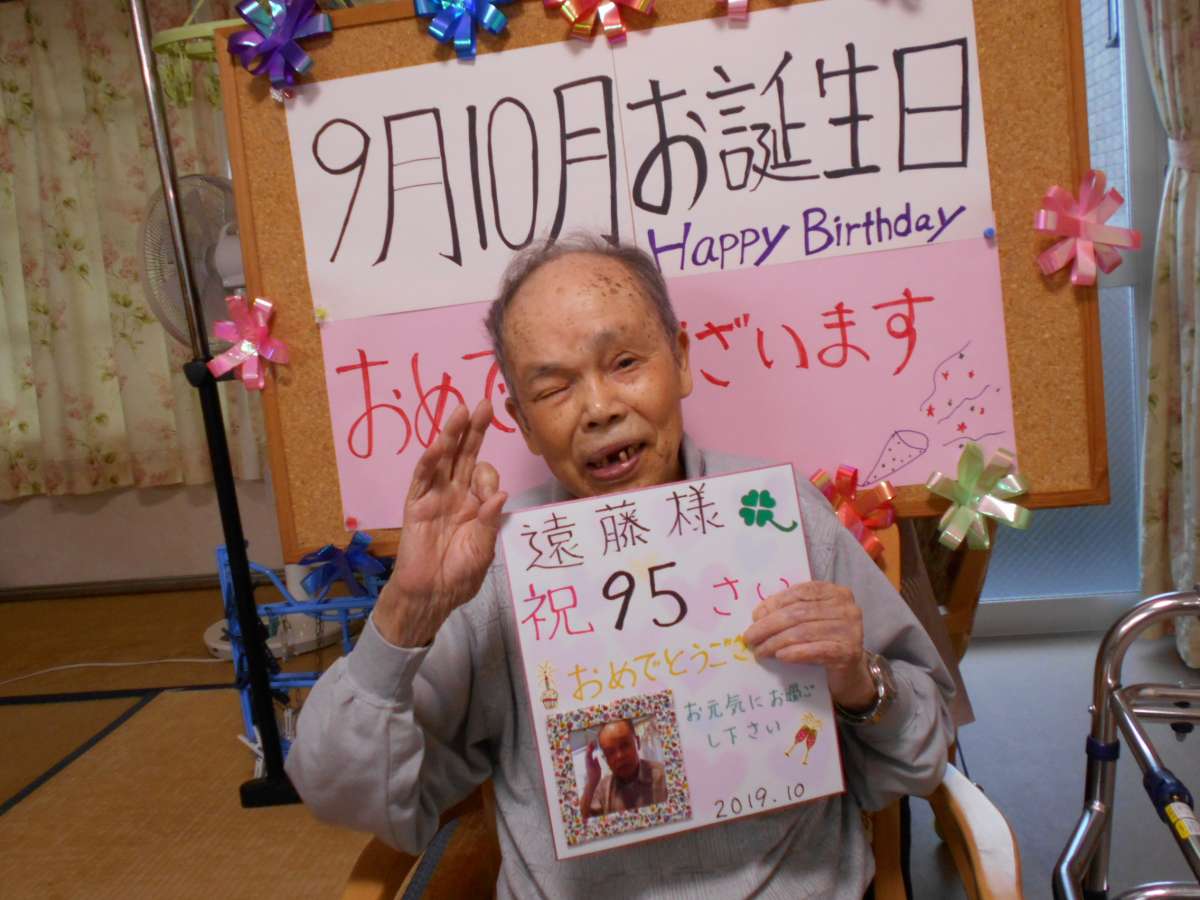 9月10月お誕生日
Happy Birthday
おめで ざいます
遠藤様
祝95さい
おめでとうござ
お元気にお過ご
し下さい
2019.10